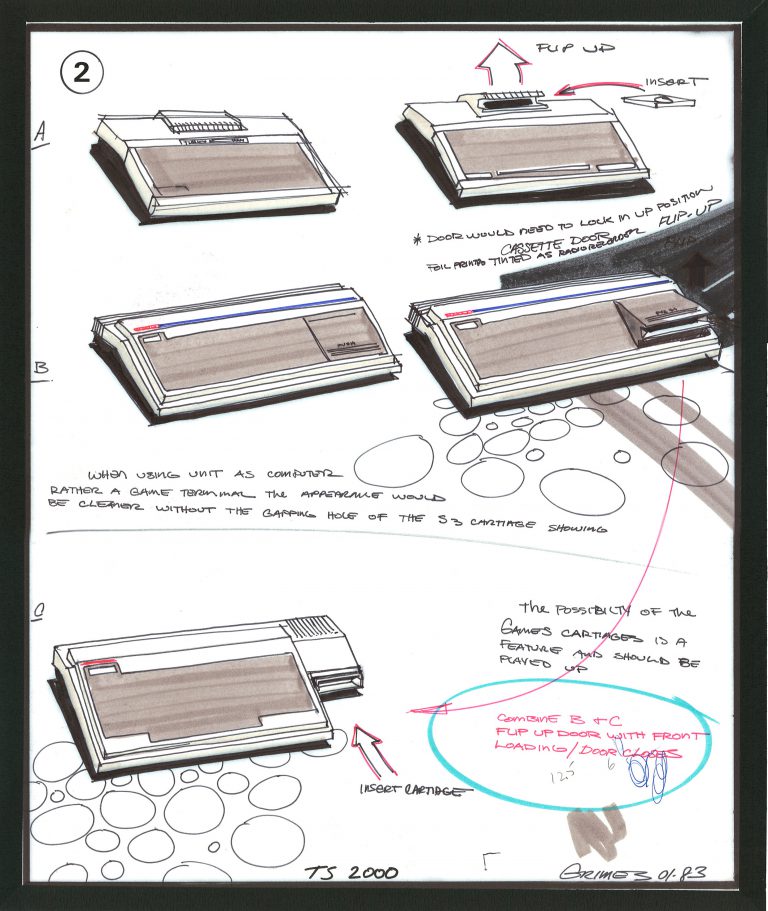 2
FLIP UP
INSERT
A
* DOOR WOULD NEED TO LOCK IN UP POSITION
CASSETTE DOOR
FLIP-UP
FOIL PRINTED TINTED AS RADIO RECORDER
FLIP
B
PUSH
WHEN USING UNIT AS COMPUTER
RATHER A GAME TERMINAL THE APPEARANCE WOULD
BE CLEANER WITHOUT THE GAPPING HOLE OF THE S3 CARTIAGE SHOWING
C
THE POSSIBILTY OF THE
GAMES CARTIAGES IS A
FEATURE AND SHOULD BE
PLAYED UP
COMBINE B + C
FLIP UP DOOR WITH FRONT
LOADING / DOOR CLOSES
INSERT CARTIAGE
TS 2000
GRIMES 01-83